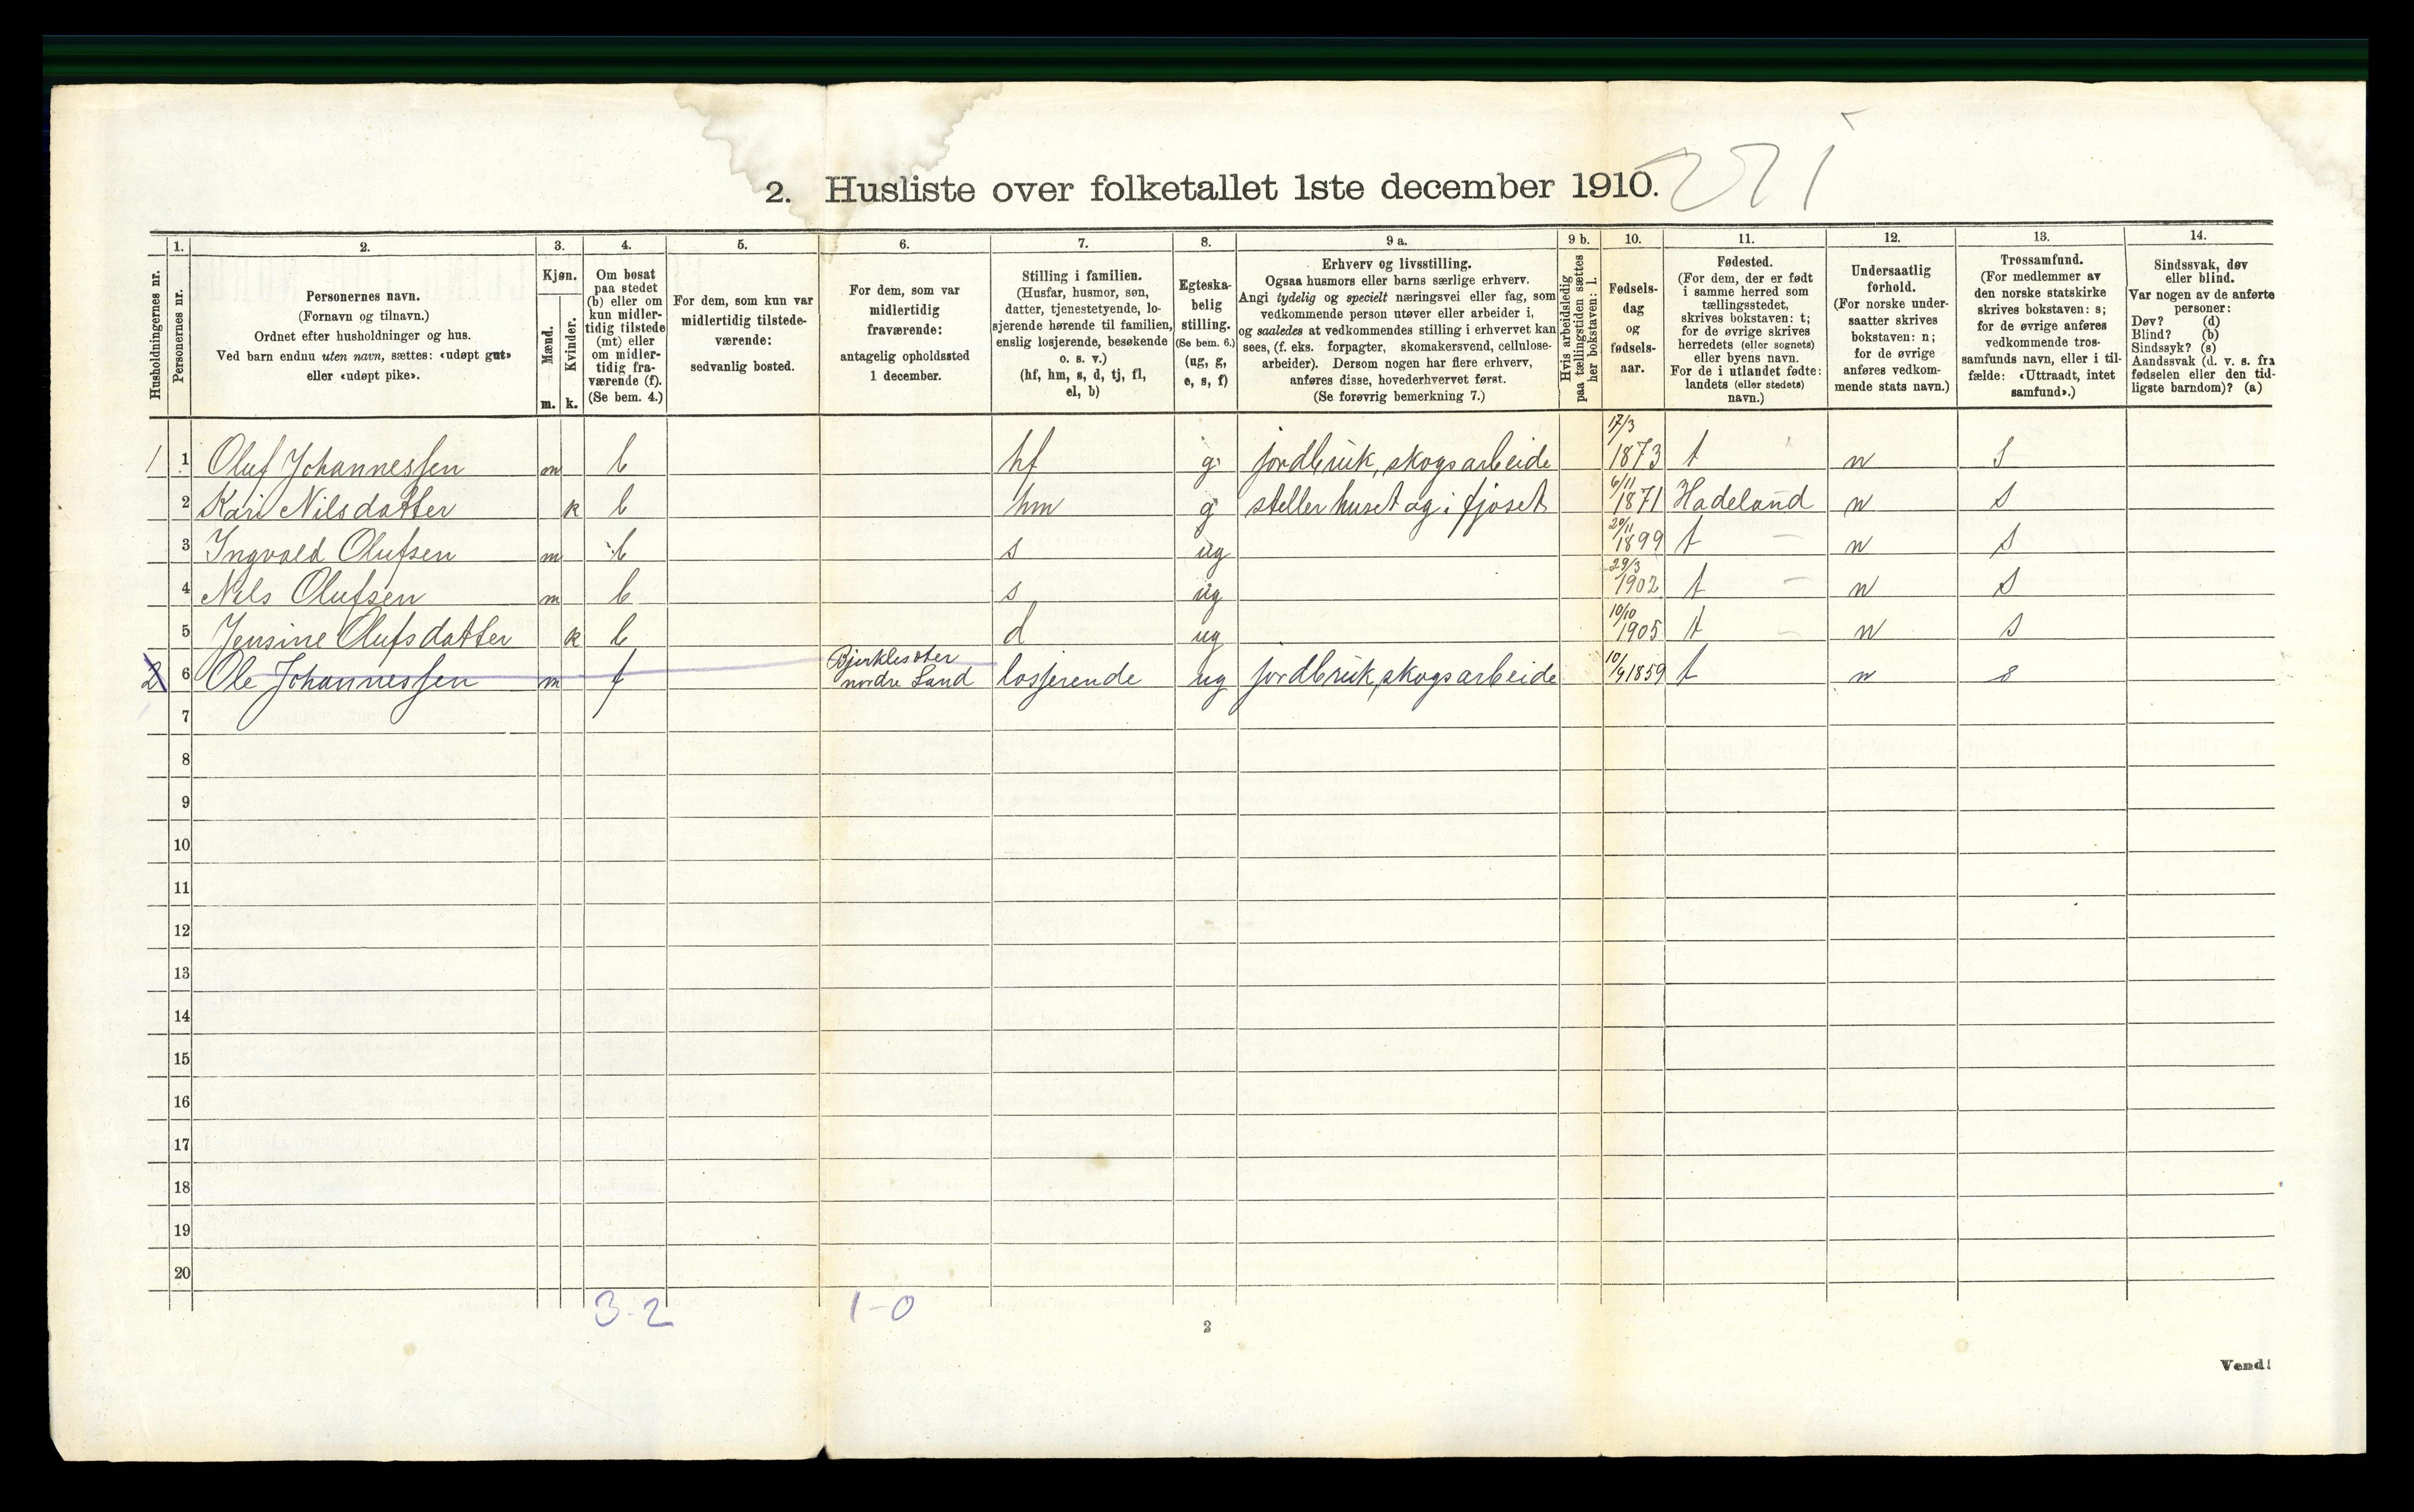 271
2. Husliste over folketallet 1ste december 1910.
Husholdningernes nr.
1. Personernes nr.
2. Personernes navn.
(Fornavn og tilnavn.)
Ordnet efter husholdninger og hus.
Ved barn endnu uten navn, sættes: «udøpt gut»
eller «udøpt pike».
3. Kjøn.
Mænd. m.
Kvinder. k.
4. Om bosat
paa stedet
(b) eller om
kun midler-
tidig tilstede
(mt) eller
om midler-
tidig fra-
værende (f).
(Se bem. 4.)
5. For dem, som kun var
midlertidig tilstede-
værende:
sedvanlig bosted.
6. For dem, som var
midlertidig
fraværende:
antagelig opholdssted
1 december.
7. Stilling i familien.
(Husfar, husmor, søn,
datter, tjenestetyende, lo-
sjerende hørende til familien,
enslig losjerende, besøkende
o. s. v.)
(hf, hm, s, d, tj, fl,
el, b)
8. Egteska-
belig
stilling.
(Se bem. 6.)
(ug, g,
e, s, f)
9 a. Erhverv og livsstilling.
Ogsaa husmors eller barns særlige erhverv.
Angi tydelig og specielt næringsvei eller fag, som
vedkommende person utøver eller arbeider i,
og saaledes at vedkommendes stilling i erhvervet kan
sees, (f. eks. forpagter, skomakersvend, cellulose-
arbeider). Dersom nogen har flere erhverv,
anføres disse, hovederhvervet først.
(Se forøvrig bemerkning 7.)
9 b. Hvis arbeidsledig
paa tællingstiden sættes
her bokstaven: l.
10. Fødsels-
dag
og
fødsels-
aar.
11. Fødested.
(For dem, der er født
i samme herred som
tællingsstedet,
skrives bokstaven: t;
for de øvrige skrives
herredets (eller sognets)
eller byens navn.
For de i utlandet fødte:
landets (eller stedets)
navn.)
12. Undersaatlig
forhold.
(For norske under-
saatter skrives
bokstaven: n;
for de øvrige
anføres vedkom-
mende stats navn.)
13. Trossamfund.
(For medlemmer av
den norske statskirke
skrives bokstaven: s;
for de øvrige anføres
vedkommende tros-
samfunds navn, eller i til-
fælde: «Uttraadt, intet
samfund».)
14. Sindssvak, døv
eller blind.
Var nogen av de anførte
personer:
Døv? (d)
Blind? (b)
Sindssyk? (s)
Aandssvak (d. v. s. fra
fødselen eller den tid-
ligste barndom)? (a)
1 1 Oluf Johannessen m b hf g jordbruk, skogsarbeide 17/3 1873 t n s
2 Kari Nilsdatter k b hm g steller huset og i fjøset 6/11 1871 Hadeland n s
3 Ingvald Olufsen m b s ug 20/11 1899 t n s
4 Nils Olufsen m b s ug 29/3 1902 t n s
5 Jensine Olufsdatter k b d ug 10/10 1905 t n s
2 6 Ole Johannessen m f nordre Land losjerende ug jordbruk, skogsarbeide 10/9 1859 t n s
7
8
9
10
11
12
13
14
15
16
17
18
19
20
3-2 1-0
2
Vend!